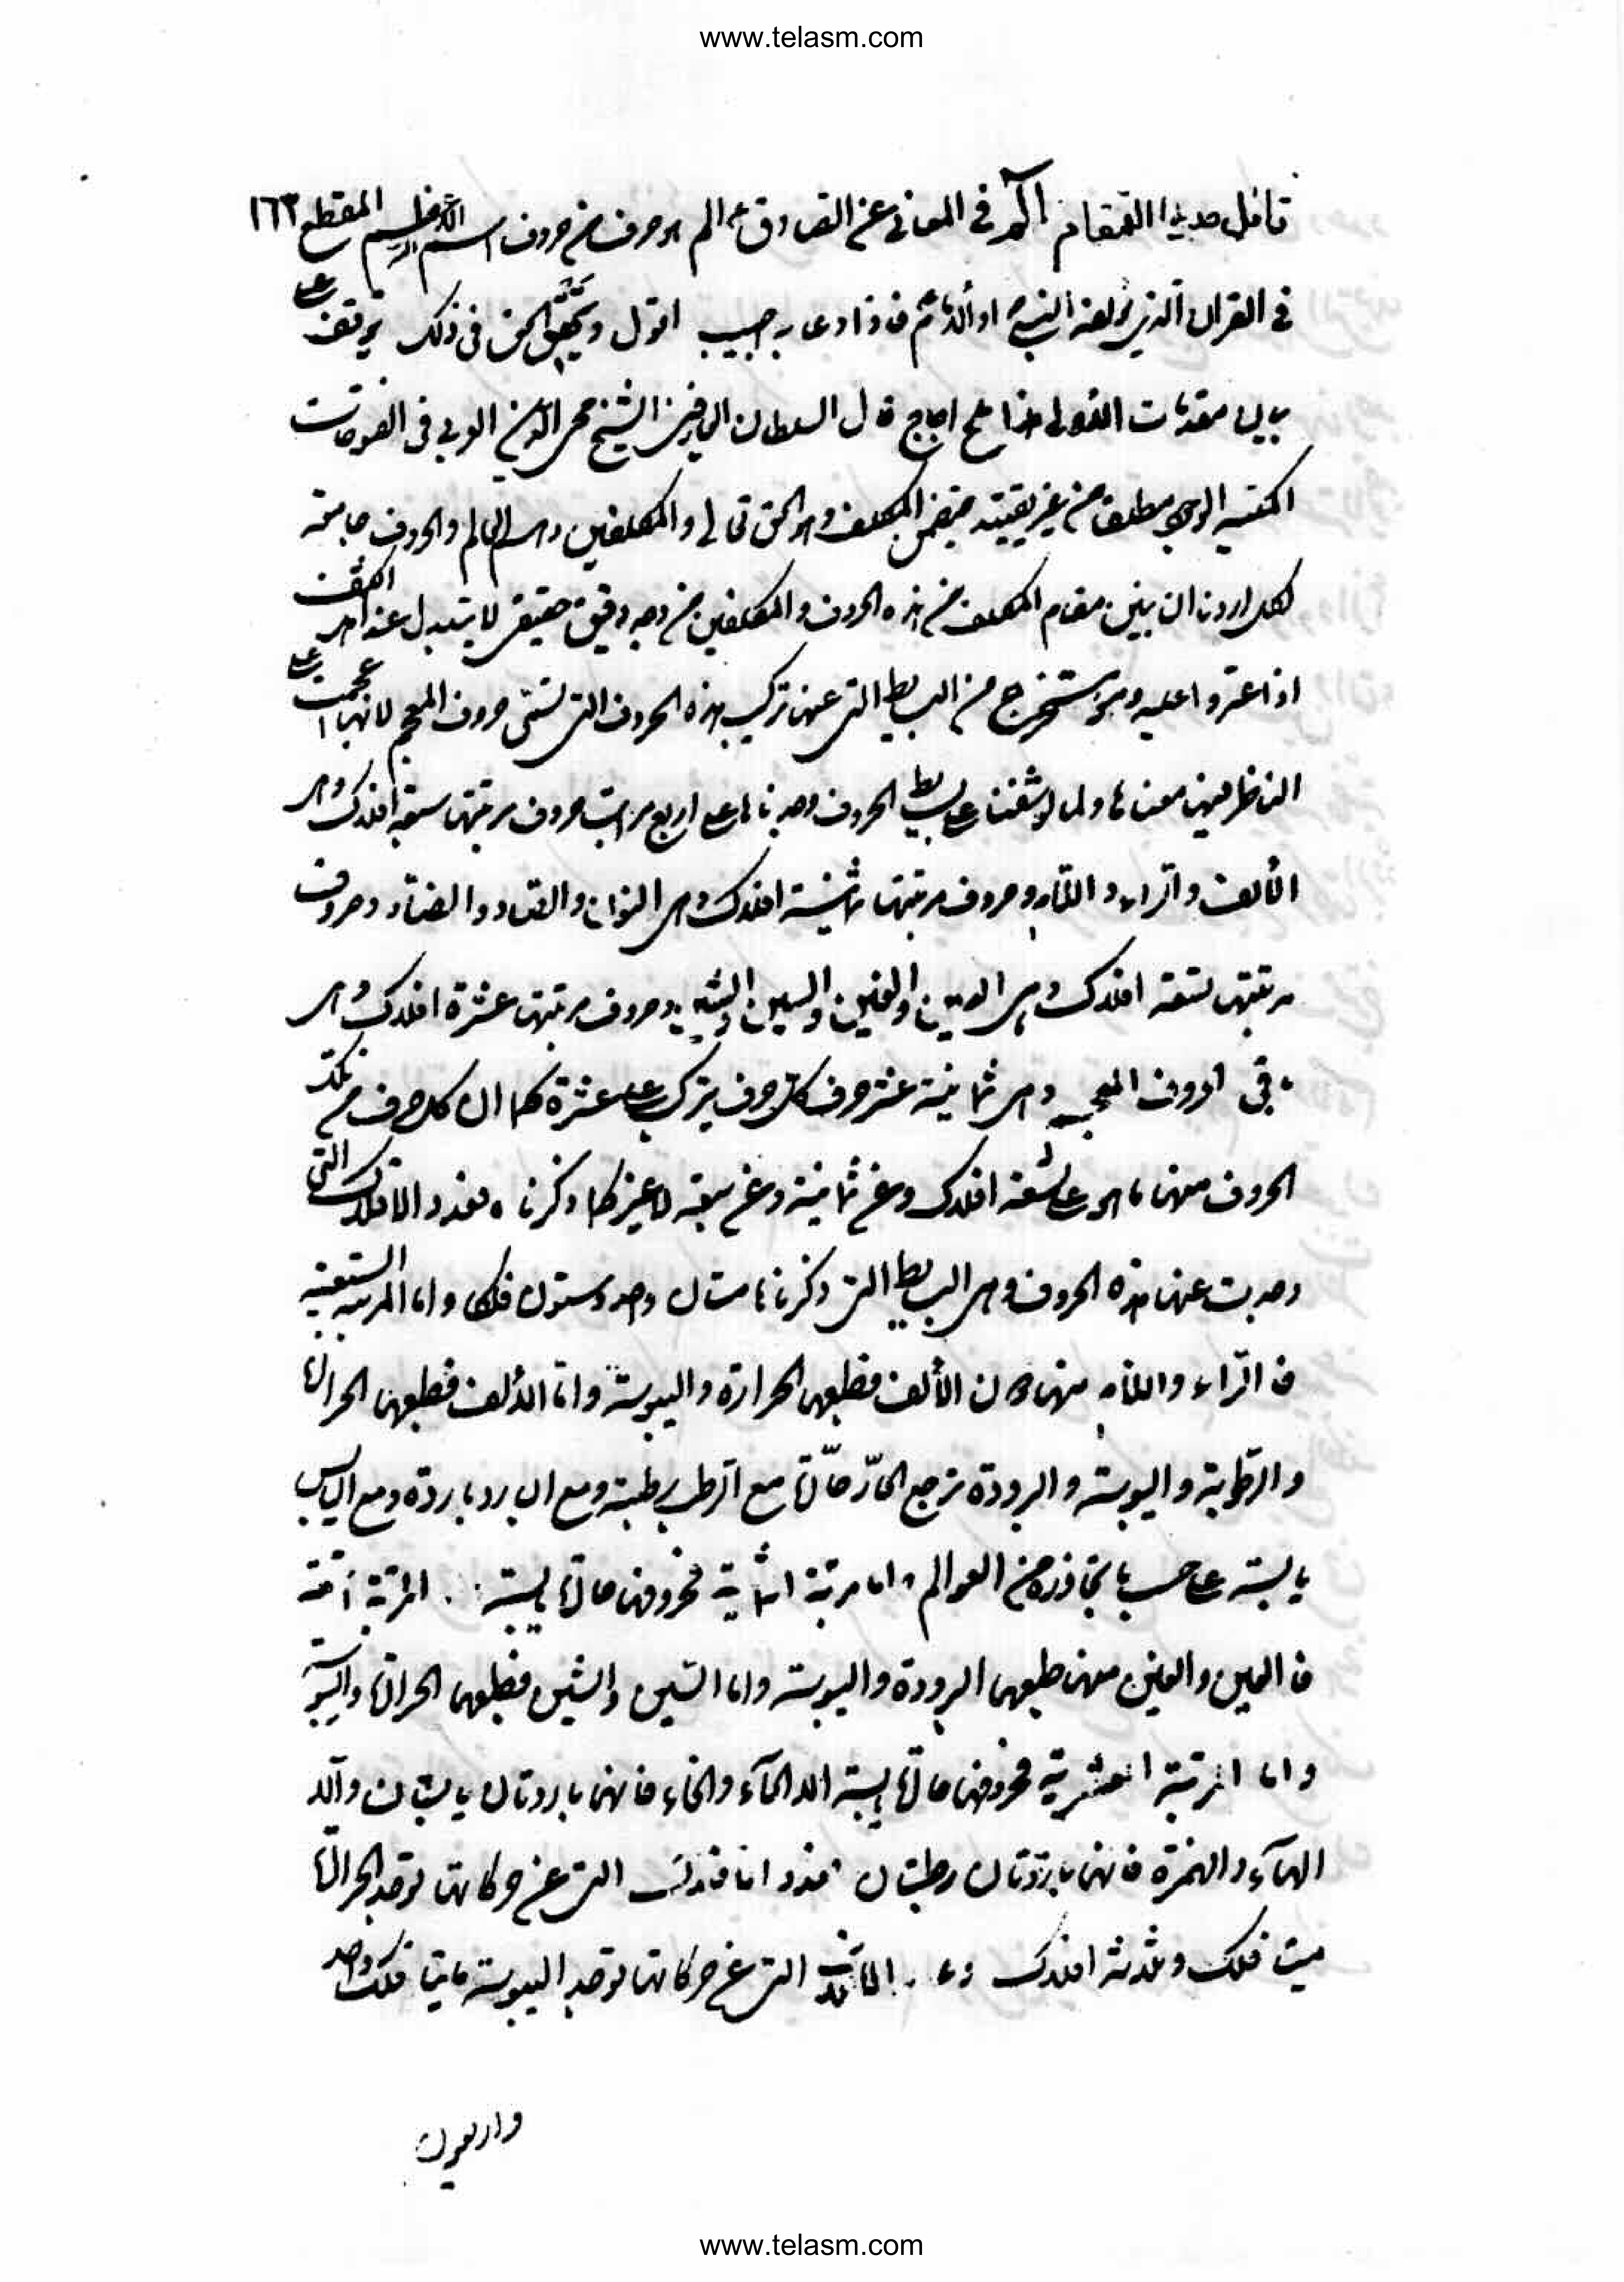 www.telasm.com
في المعاني عن الصادق ع الم هو حرف من حروف اسم الله الاعظم المقطع ١٦٣
في القران الذي يؤلفه النبي او الامام فاذا دعا به اجيب اقول وتحقيق الحق في ذلك يتوقف على
بيان مقدمات الشيخ محي الدين العربي في الفتوحات
المكلف وهو الحق تعالى والمكلفين وهم العالم والحروف جامعة
لكل اردنا ان نبين مقام المكلف من هذه الحروف والمكلفين من وجه دقيق حقيقي لا يتبدل عند اهل الكشف
اذا عثروا عليه وهو مستخرج من البسايط التي عنها تركيب هذه الحروف التي تسمى حروف المعجم لانها عجمت على
الناظر فيها معناها ولما كوشفنا على بسايط الحروف وجدناها على اربع مراتب حروف مرتبتها سبعة افلاك وهي
الألف والزاء واللام وحروف مرتبتها ثمانية افلاك وهي النون والصاد والضاد وحروف
مرتبتها تسعة افلاك وهي العين والغين والسين والشين وحروف مرتبتها عشرة افلاك وهي
باقي الحروف المعجمة وهي ثمانية عشر حرف كل حرف يتركب على عشرة كما ان كل حرف من تلك
الحروف منها ما هو على تسعة افلاك وعن ثمانية وعن سبعة لا غير كما ذكرناه فعدد الافلاك التي
وجدت عنها هذه الحروف وهي البسايط التي ذكرناها مأتان واحد وستون فلكا واما المرتبة السبعية
فالزاء واللام منها دون الألف فطبعها الحرارة واليبوسة واما الالف فطبعها الحرارة
والرطوبة واليبوسة والبرودة ترجع الحار حارة مع الرطب رطبة ومع البارد باردة ومع اليابس
يابسة على حسب ما تجاوره من العوالم واما مرتبة الثمانية فحروفها حارة يابسة المرتبة
فالعين والغين منها طبعهما البرودة واليبوسة واما السين والشين فطبعهما الحرارة واليبوسة
واما المرتبة العشرية فحروفها حارة يابسة الا الحاء والخاء فانهما باردتان يابستان والا
الهاء والهمزة فانهما باردتان رطبتان فعدد الافلاك التي عن حركاتها توجد الحرارة
فلك وثلاثة افلاك التي عن حركاتها توجد اليبوسة مايتا فلك واحد
واربعون
www.telasm.com